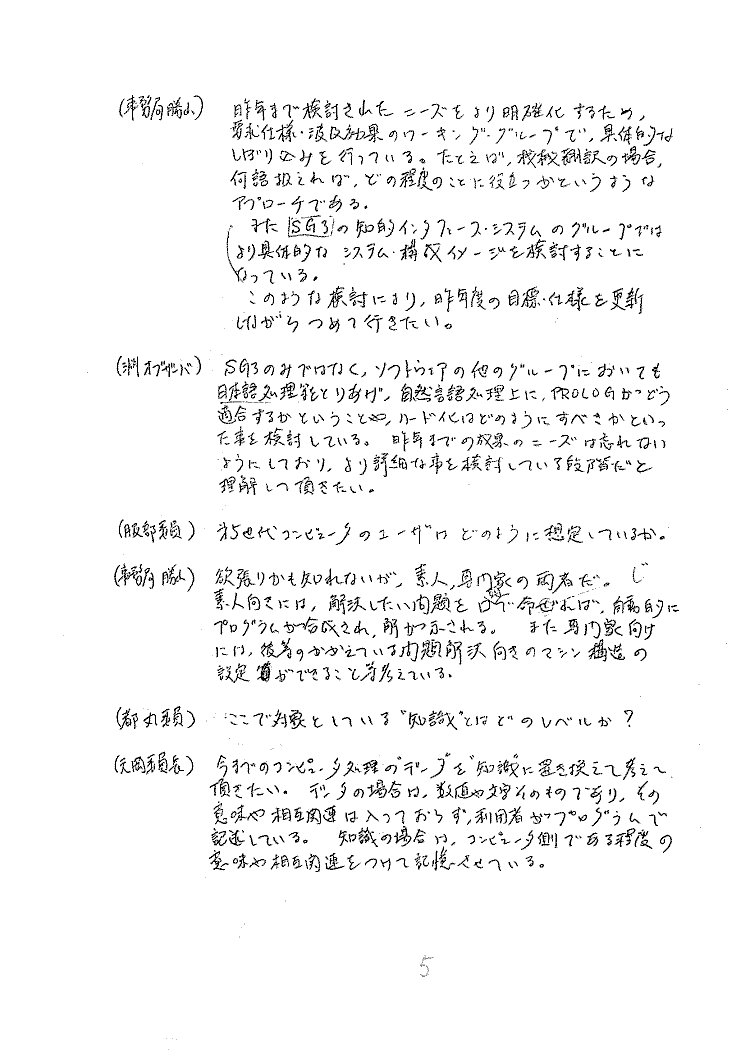 (事務局 勝山) 昨年まで検討されたニーズをより明確化するため,
要求仕様・波及効果のワーキング・グループで, 具体的な
しぼり込みを行っている。たとえば, 機械翻訳の場合,
何語扱えれば, どの程度のことに役立つかというような
アプローチである。
また SG3 の知的インタフェース・システムのグループでは
より具体的な システム・構成イメージを検討することに
なっている。
このような検討により, 昨年度の目標・仕様を更新
しながら つめて行きたい。
(渕オブザーバ) SG3のみではなく, ソフトウェアの他のグループにおいても
日本語処理等をとりあげ, 自然言語処理上に, PROLOGがどう
適合するかということや, ハード化はどのようにすべきかといっ
た事を検討している。 昨年までの成果のニーズは忘れない
ようにしており, より詳細な事を検討している段階だと
理解して頂きたい。
(服部委員) 第5世代コンピュータのユーザは どのように想定しているか。
(事務局 勝山) 欲張りかも知れないが, 素人, 専門家の両者だ。
素人向きには, 解決したい問題を 口で命ずれば, 自動的に
プログラムが合成され, 解が示される。 また専門家向け
には, 彼等のかかえている問題解決向きのマシン構造の
設定ができること等考えている。
(都丸委員) ここで対象としている"知識"とはどのレベルか?
(元岡委員長) 今までのコンピュータ処理の"データ"を"知識"に置き換えて考えて
頂きたい。 データの場合は, 数値や文字そのものであり, その
意味や相互関連は入っておらず, 利用者がプログラムで
記述している。 知識の場合は, コンピュータ側である程度の
意味や相互関連をつけて記憶させている。
5